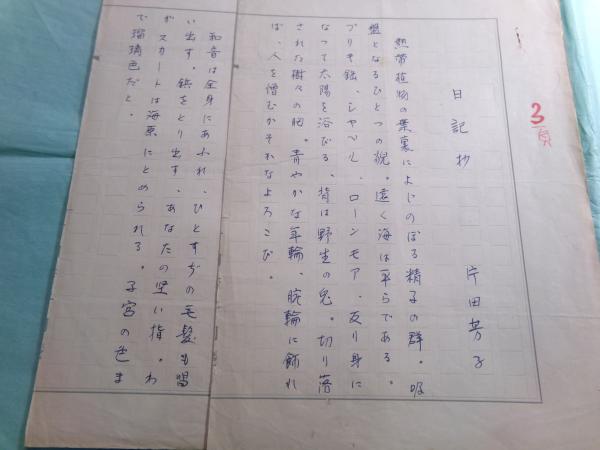 3頁
日記抄
片田芳子
熱帯植物の葉裏によじのぼる精子の群。吸
盤となるひとつの貌。遠く海は平らである。
ブリキ鋏、シャベル、ローンモア、反り身に
なって太陽を浴びる、背は野生の兎。切り落
された樹々の胴。青やかな年輪、腕輪に飾れ
ば、人を憎むかすかなよろこび。
和音は全身にあふれ、ひとすぢの毛髪も唱
い出す。鋏をとり出す、あなたの堅い指。わ
がスカートは海原にとめられる。子宮の色ま
で瑠璃色だと。